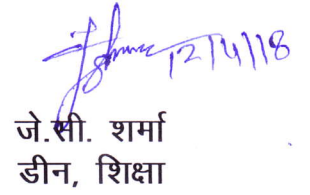 12/4/18
जे.सी. शर्मा
डीन, शिक्षा